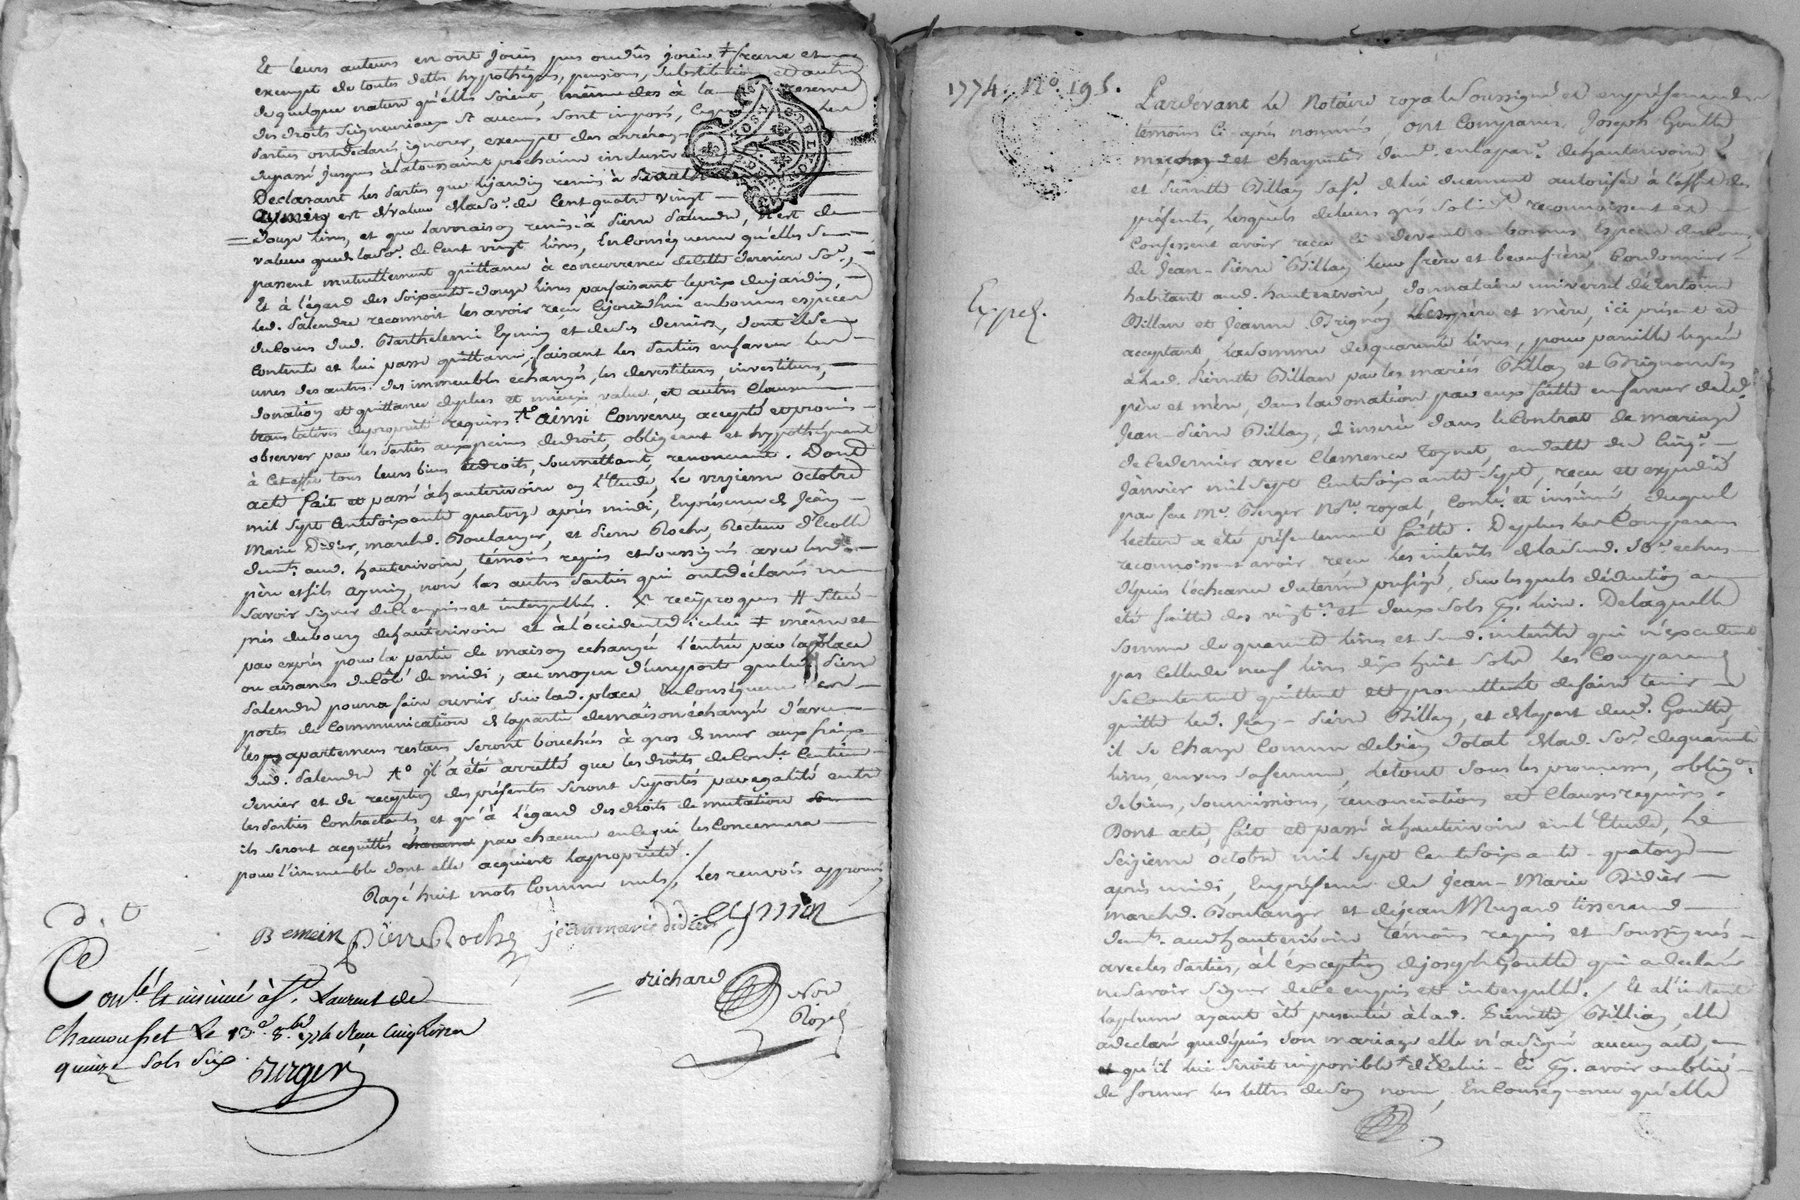 Et leurs auteurs en ont joüis pus ou dûs joüir ‡ franc et
exempt de toutes dettes hypothéques, pensions, substitutions et autres
de quelque nature qu'elles soient, à la reserve
des droits seigneuriaux si aucuns sont imposés,
parties ont déclaré ignorer, exempt des arrérages
du passé jusques à la toussaint prochaine inclusive
Declarant les parties que le jardin remis à
Aymin est de valeur de la so.e de cent quatre vingt
douze livres, et que la portion remise à pierre Palandre, n'est de
valeur que de la so.e de cent vingt livres, En conséquence qu'elles se
passent mutuellement quittance à concurrence de cette derniere so.e,
Et à l'égard des soixante-douze livres parfaisant le prix du jardin,
led. Palandre reconnoit les avoir reçu cejourd'hui en bonnes especes
du cours dud. Barthelemi Eymin et de ses deniers, dont il se
contente et lui passe quittance, faisant les parties en faveur les
unes des autres des immeubles échangés, les devestitures, investitures,
donation et quittance de plus et mieux value, et autres clauses
translatives de propriété requises ainsi convenu accepté et promis
observer par les parties aux peines de droit, obligeant et hypothéquant
à cet effet tous leurs biens droits, soumettant, renonçant. Dont
acte fait et passé à hauterivoire en l'Etude, le onzieme octobre
mil sept cent soixante quatorze après midi, En présence de Jean
Marie Didier, march.d Boulanger, et Pierre Roche, Recteur d'Ecolle
dem.ts aud. hauterivoire, témoins requis et soussignés avec les
père et fils Aymin, non les autres parties qui ont déclaré ne
savoir signer de ce enquis et interpellés. reciproques Situé
près du bourg de hauterivoire et à l'occident d'icelui ‡ même et
par exprès pour la partie de maison échangée l'entrée par la place
ou aisances du côté de midi, au moyen d'une porte que led. pierre
Palandre pourra faire ouvrir sur lad. place En conséquence les
portes de communication de la partie de maison échangée d'avec
les apartemens restans seront bouchés à gros de mur aux fraix
dud. Palandre il a été arretté que les droits de Con.le Centieme
denier et de reception des présentes seront suportés par egalité entre
les parties contractantes et qu'à l'égard des droits de mutation
ils seront acquittés par chacun en ce qui les concernera
pour l'immeuble dont elle acquiert la propriété.
Rayé huit mots comme nuls, les renvois approuvés
Bemein pierre Roche jean marie didier eymin
richard Not.e Royal
Con.lé et insinué à S.t Laurent de
chamousset Le 13.e 8.bre 1774 Reçu cinq livres
quinze sols six
Burger
1774. N.o 195.
Expéd.
Pardevant Le Notaire royal soussigné et en présence des
témoins ci-après nommés, ont comparus, Joseph Goutte,
et charpentier dem.t en la par.se de hauterivoire
et Pierrette Billay sa fe. de lui duement autorisée à l'effet des
présentes, lesquels de leurs grés solid.t reconnoissent et
confessent avoir reçu ci-devant en bonnes Especes du cours
de Jean-Pierre Billay leur frère et beaufrère, Cordonnier
habitant aud. hauterivoire, donnataire universel d'Antoine
Billay et Jeanne Brignon ses père et mère, ici présent et
acceptant, la somme de quarante livres, pour pareille leguée
à lad. Pierrette Billay par les mariés Billay et Brignon ses
père et mère, dans la donation par eux faitte en faveur dud.
Jean-Pierre Billay, & inserée dans le contrat de mariage
de ce dernier avec Clemence Toynet, en datte du cinq.e
Janvier mil sept cent soixante sept, reçu et expédié
par feu M.e Berger No.re royal, Contr.lé et insinué, duquel
lecture a été présentement faitte. De plus les Comparans
reconnoissent avoir reçu les interêts de lad. so.e echus
depuis l'echéance du terme préfixé, sur lesquels déduction a
été faitte des vingt.e et deux sols p. livre. De laquelle
somme de quarante livres et sesd. interêts qui n'excedent
pas celle de neuf livres dix huit sols, les Comparans
se contentent quittent et promettent de faire tenir
quitte led. Jean-Pierre Billay, et de la part dud. Goutte
il se charge comme de bien Dotal de lad. so.e de quarante
livres, envers sa femme, le tout sous les promesses, oblig.on
de biens, soumissions, renonciations et clauses requises.
Dont acte, fait et passé à hauterivoire en l'Etude, Le
seizieme octobre mil sept cent soixante-quatorze
après midi, En présence de Jean-Marie Didier
march.d Boulanger et de jean Muzard tisserand
dem.ts aud. hauterivoire Témoins requis et soussignés
avec les parties, à l'exception de joseph Goutte qui a declaré
ne savoir signer de ce enquis et interpellé. Et à l'instant
la plume ayant été présentée à lad. Pierrette Billay, elle
a declaré que depuis son mariage elle n'a signé aucun acte,
qu'il lui seroit impossible de avoir oublié
de former les lettres de son nom, En conséquence qu'elle